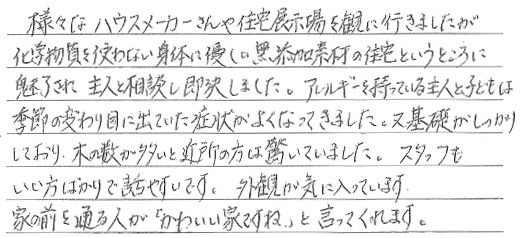 様々なハウスメーカーさんや住宅展示場を観に行きましたが
化学物質を使わない身体に優しい無添加素材の住宅というところに
魅了され 主人と相談し即決しました。アレルギーを持っている主人と子どもは
季節の変わり目に出ていた症状がよくなってきました。又基礎がしっかり
しており、木の数が多いと近所の方は驚いていました。スタッフも
いい方ばかりで話やすいです。外観が気に入っています。
家の前を通る人が「かわいい家ですね。」と言ってくれます。